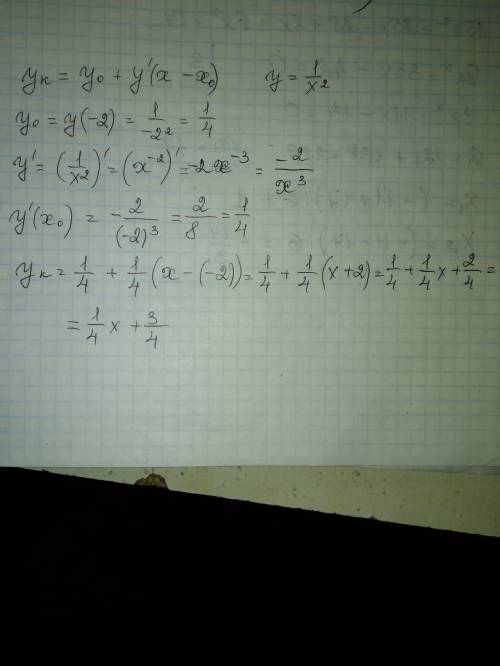 yк = y₀ + y'(x − x₀) y = 1/x²
y₀ = y(−2) = 1/−2² = 1/4
y' = (1/x²)' = (x⁻²)' = −2x⁻³ = −2/x³
y'(x₀) = −2/(−2)³ = 2/8 = 1/4
yк = 1/4 + 1/4 (x − (−2)) = 1/4 + 1/4 (x + 2) = 1/4 + 1/4 x + 2/4 =
= 1/4 x + 3/4